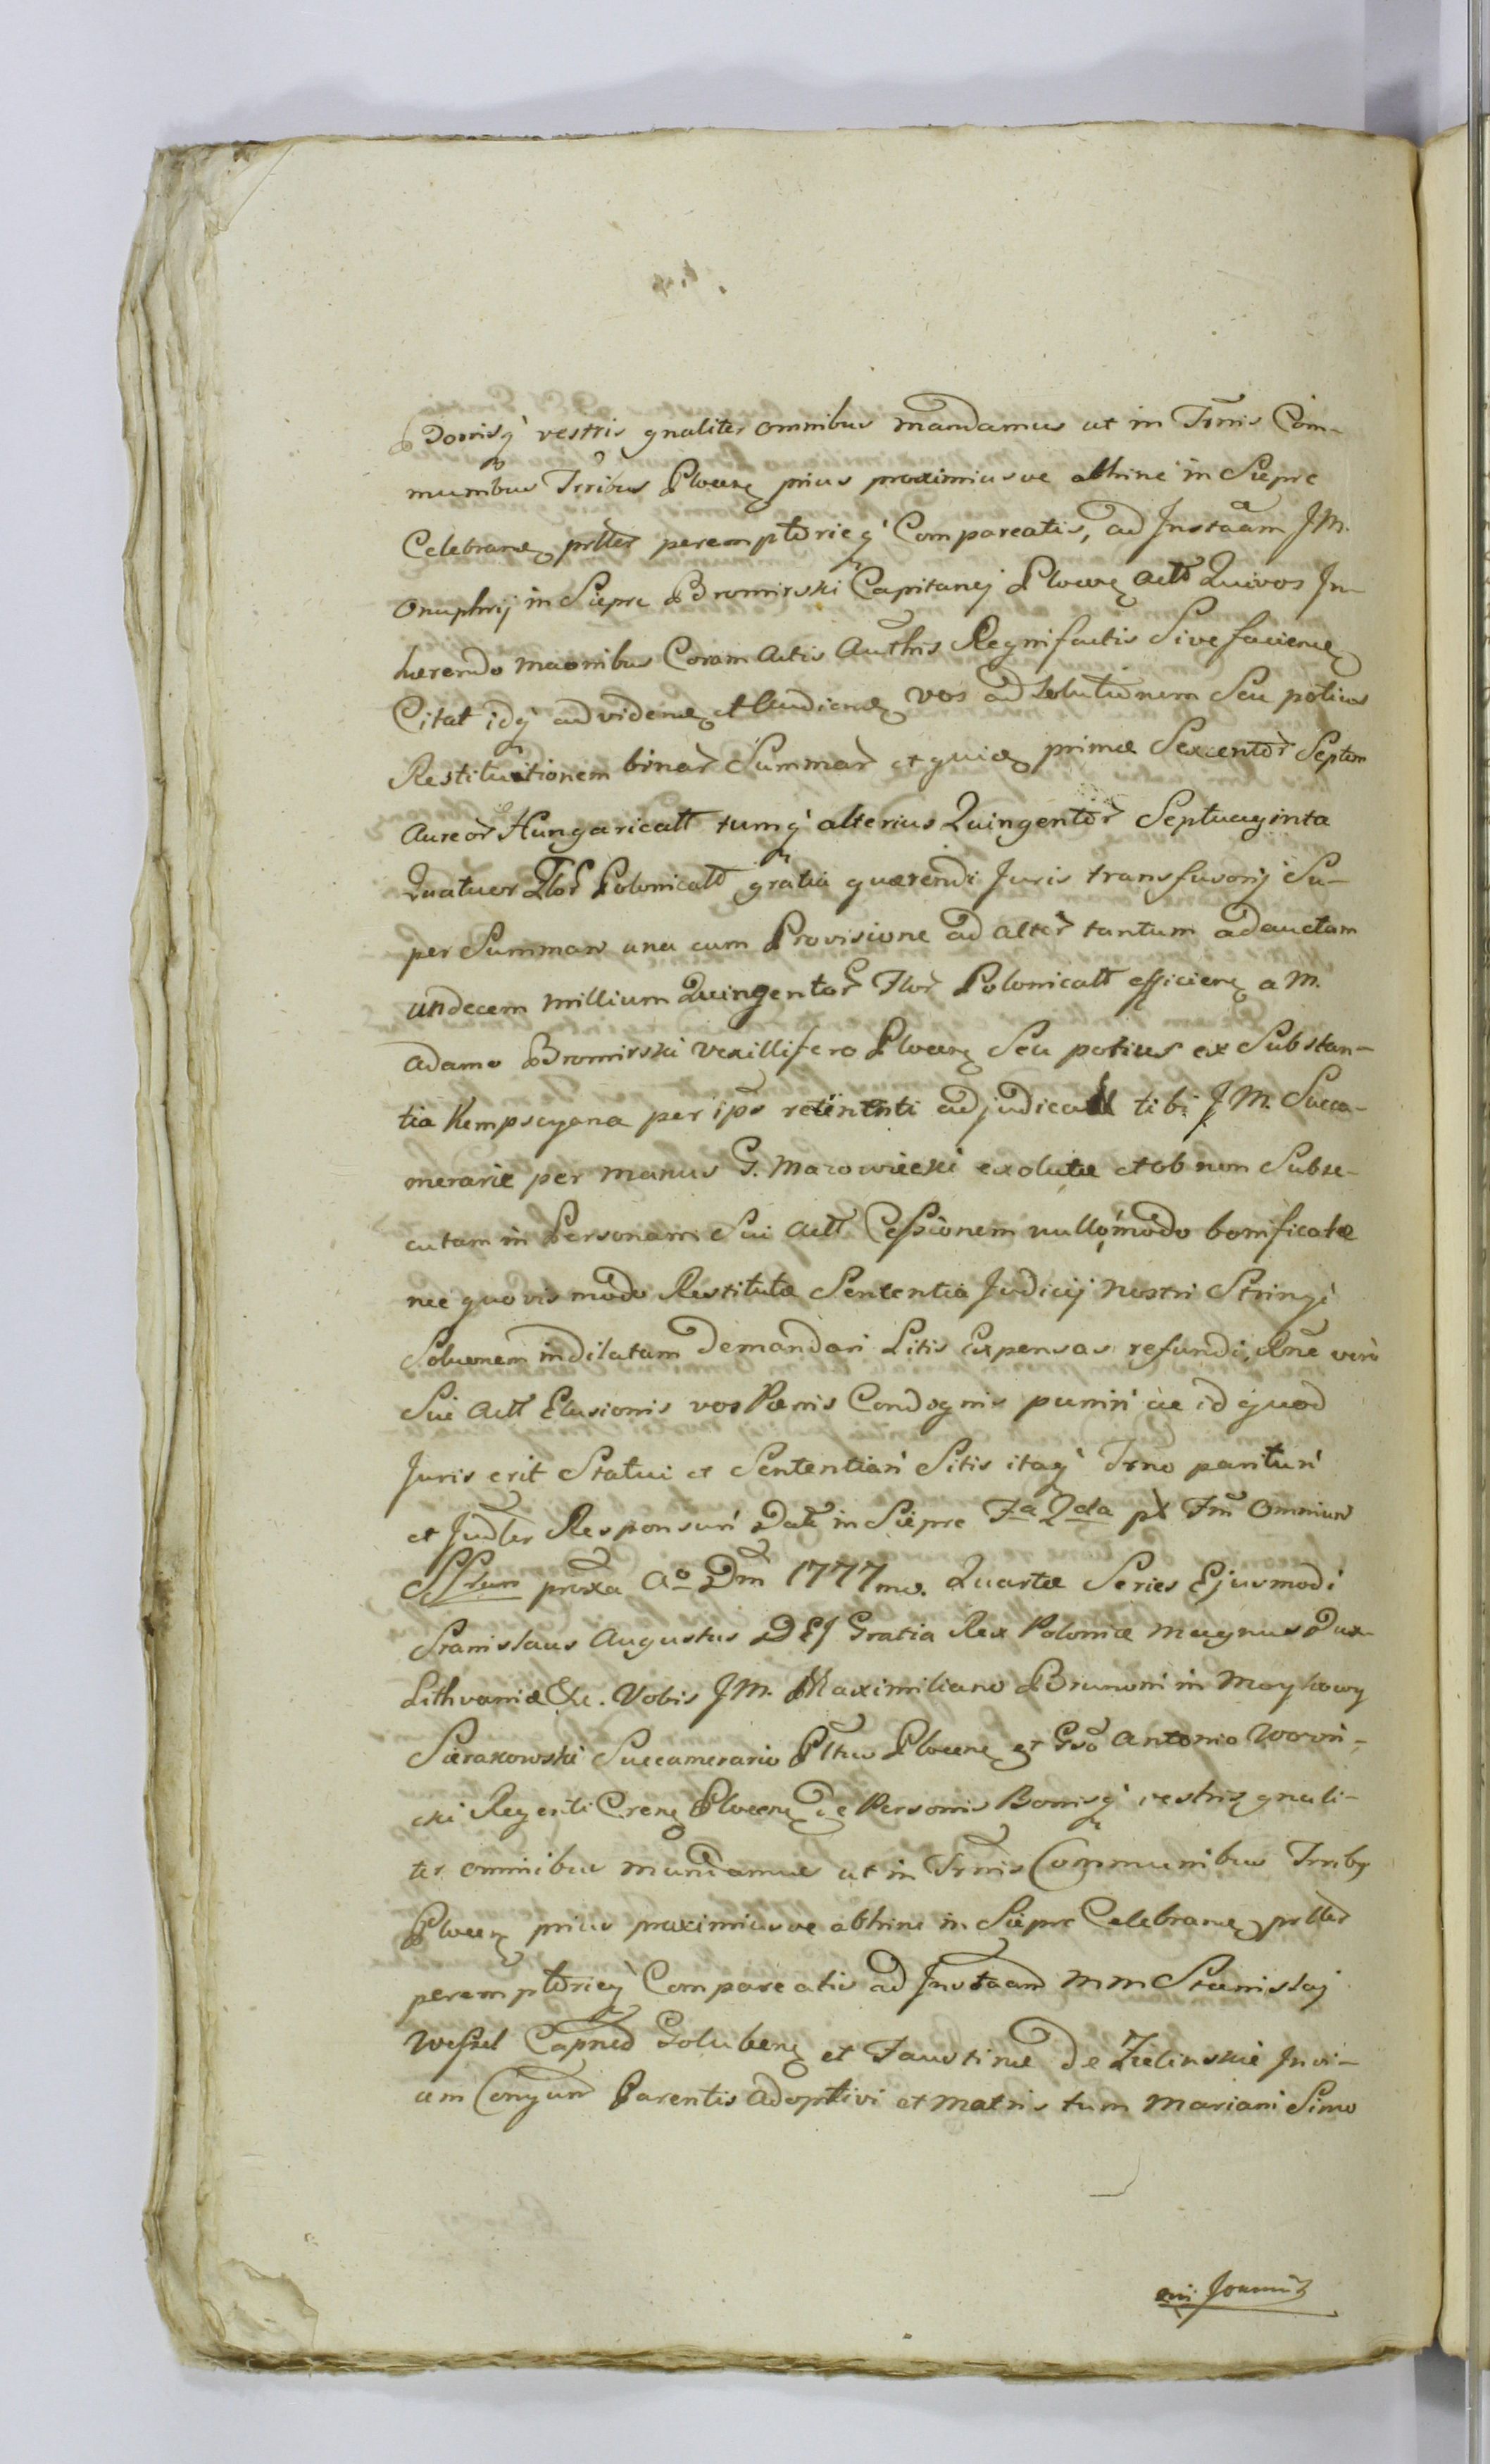 Bonisq́ vestris gnaliter omnibus mandamus ut in Trnis Com-
munibus Trribus Plocens prius proximiusve abhinc in Sieprc
Celebrans prtter peremptorieq́ Compareatis, ad Instaam JM.
Onuphrij in Sieprc Bromirski Capitanej Plocens Actt Quivos In-
herendo maonibus Coram Actis Authis Regni factis Sive faciens
Citat idq́ ad videns et Audiens vos ad Solutionem Seu potius
Restitutionem binar Summar et quid primæ Sexcentor Septem
Aureor Hungaricatt tumq́ alterius Quingentor Septuaginta
Quatuor Flor Polonicatt gratia quærendi Juris transfusorij Su-
per Summam una cum Provisione ad alter tantum adauctam
undecem millium Quingentor Flor Polonicatt efficiens a M.
Adamo Bromirski Vexillifero Plocens Seu potius ex Substan-
tia Kempscyana per ips retentnti adjudicatt tibi JM. Succa-
merarie per manus G. Mazowiecki exolutæ et ob non Subse-
cutam in Personam Sui Actt Cessionem nullomodo bonificatæ
nec quovis modo Restitutæ Sententia Judicij nostri Stringi
Solvenem indilatam demandari Litis Expensas refundi, Rne vero
Sui Actt Elusionis vos Pænis Condognis puniri ac id quod
Juris erit Statui et Sententiari Sitis itaq́ Trno parituri
et Judler Responsuri Datt in Sieprc Fa 2da pt Fm Omnium
SSrum proxa Ao Dm 1777mo. Quartæ Series Ejusmodi
Stanislaus Augustus DEI Gratia Rex Poloniæ Magnus Dux
Lithvaniæ &c. Vobis JM. Maximiliano Brunoni in Maykowy
Sierakowski Succamerario Pltus Plocens et Gso Antonio Woyni-
cki Regenti Crens Plocens de Personis Bonisq́ vestris gnali-
ter omnibus mandamus ut in Trnis Communibus Trriby
Plocens prius proximiusve abhinc in Sieprc Celebrans prtter
peremptorieq́ Compareatis ad Instaam MM Stanislaj
Wessel Capned Golubens et Faustinæ de Zielinskie Invi-
cem Conjun Parentis Adoptivi et Matris tum Mariani Simo
oni Joannis